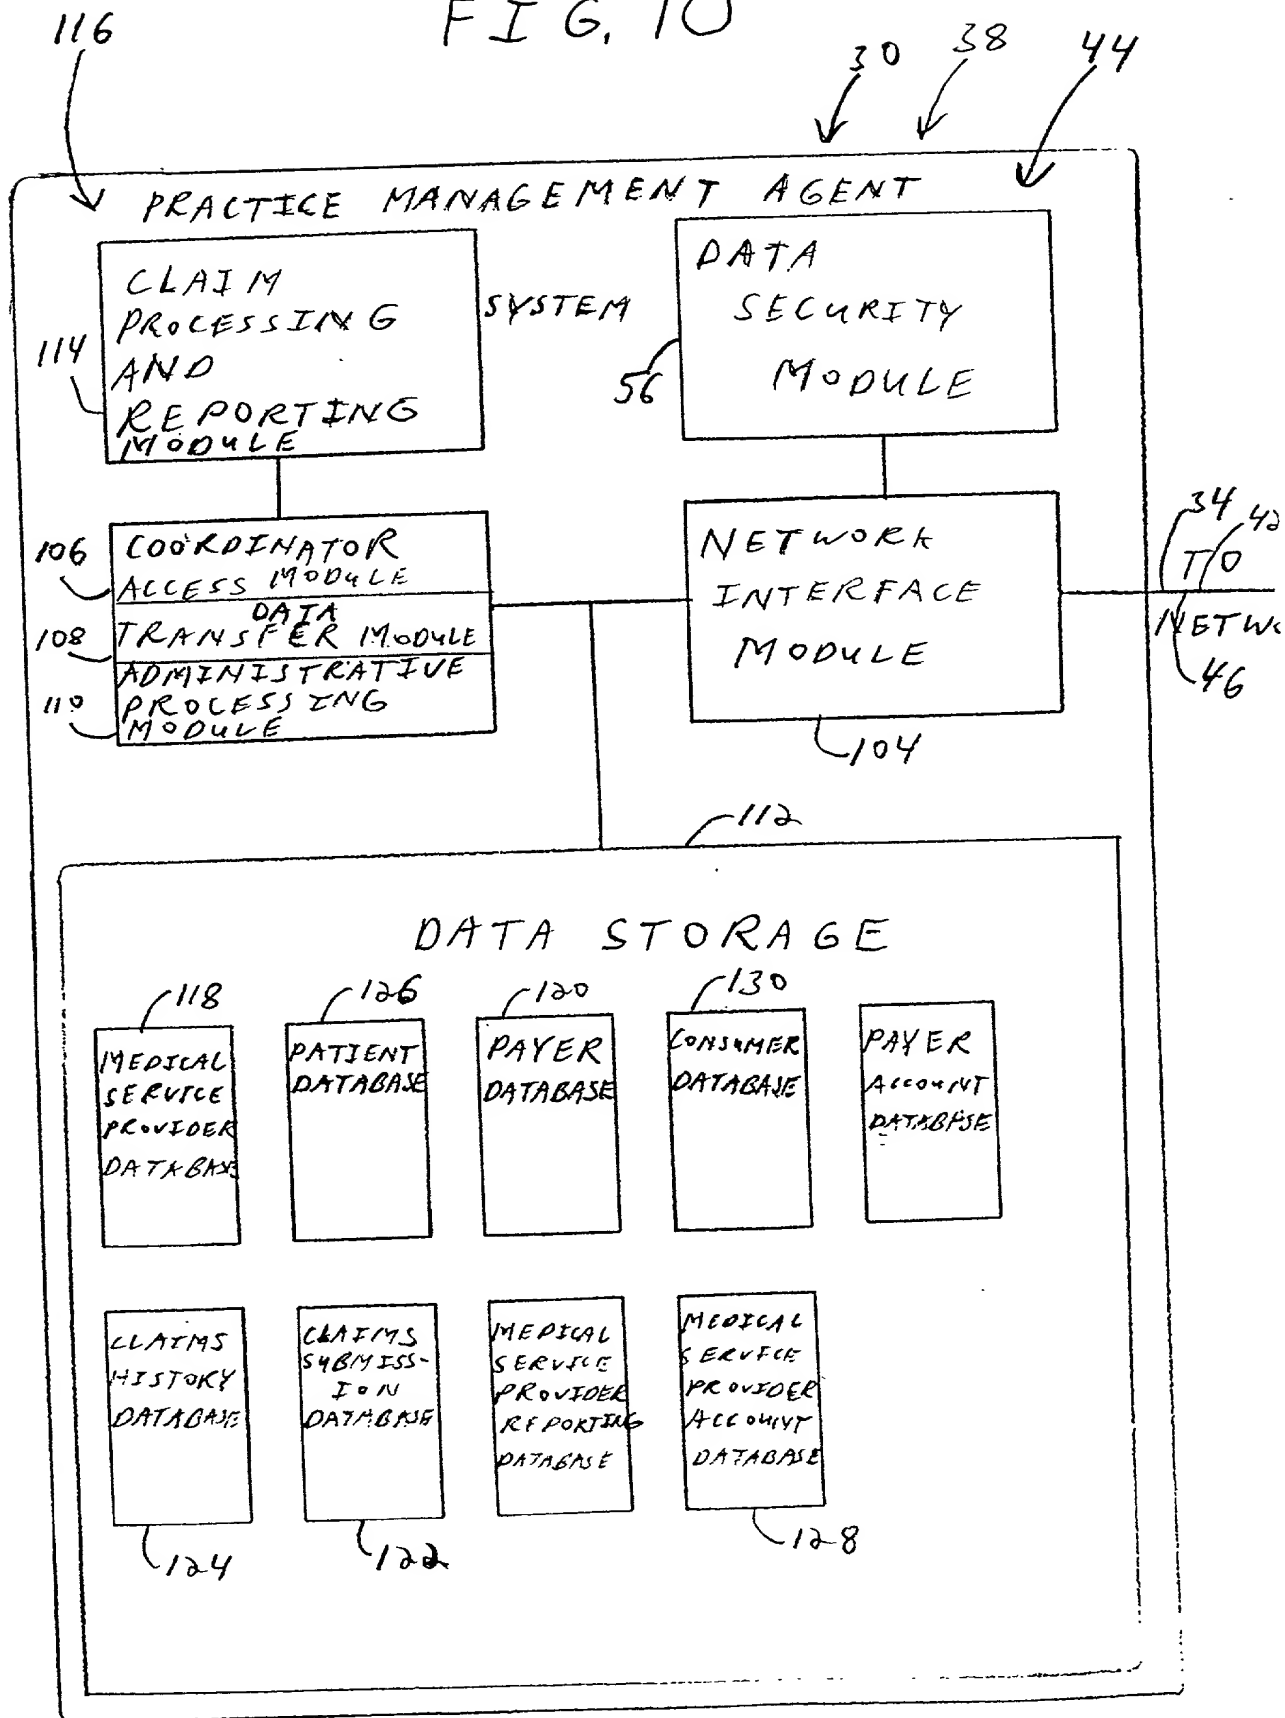 FIG. 10
116
30
38
44
PRACTICE MANAGEMENT AGENT
SYSTEM
CLAIM
PROCESSING
AND
REPORTING
MODULE
114
DATA
SECURITY
MODULE
56
106
COORDINATOR
ACCESS MODULE
108
DATA
TRANSFER MODULE
110
ADMINISTRATIVE
PROCESSING
MODULE
NETWORK
INTERFACE
MODULE
104
34
42
TO
NETWO
46
112
DATA STORAGE
118
126
120
130
MEDICAL
SERVICE
PROVIDER
DATABASE
PATIENT
DATABASE
PAYER
DATABASE
CONSUMER
DATABASE
PAYER
ACCOUNT
DATABASE
CLAIMS
HISTORY
DATABASE
CLAIMS
SUBMISS-
ION
DATABASE
MEDICAL
SERVICE
PROVIDER
REPORTING
DATABASE
MEDICAL
SERVICE
PROVIDER
ACCOUNT
DATABASE
124
122
128